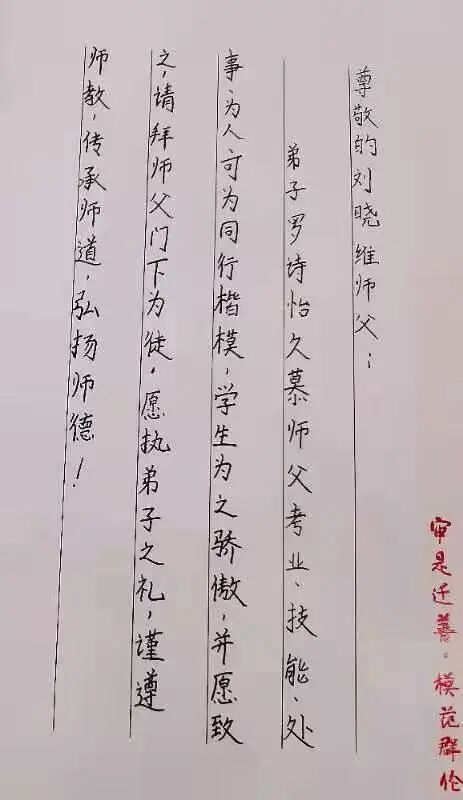 尊敬的刘晓维师父：
弟子罗诗怡久慕师父考业、技能、处
事、为人可为同行楷模，学生为之骄傲，并愿致
之，请拜师父门下为徒，愿执弟子之礼，谨遵
师教，传承师道，弘扬师德！
审是迁善。模范群伦